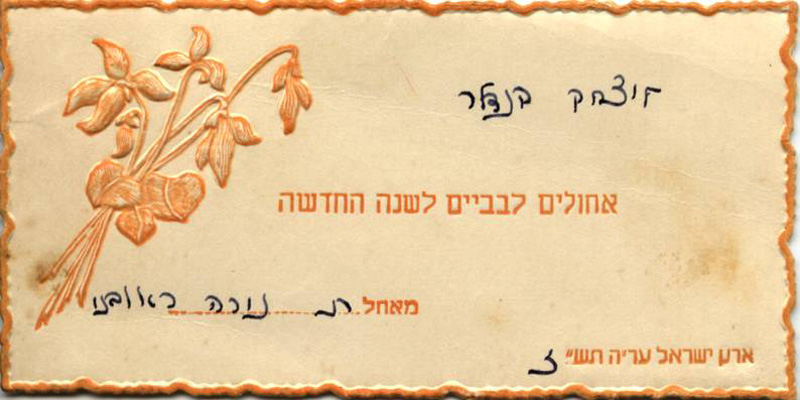 ליצחק בנדלר
אחולים לבביים לשנה החדשה
מאחל נורה ראובני
ארץ ישראל ער״ה תש״